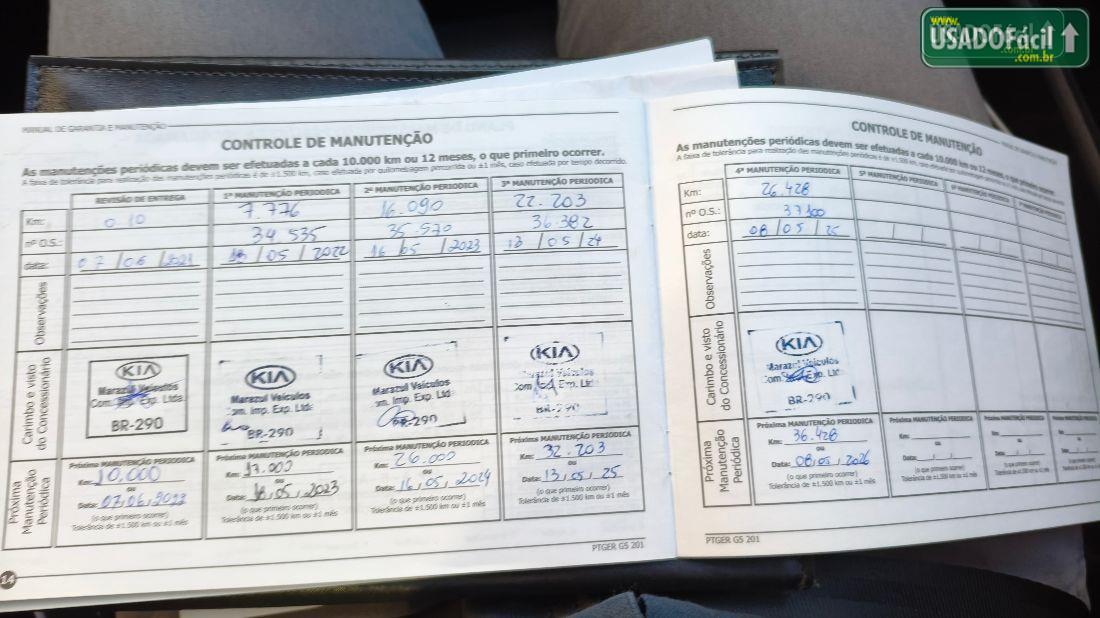 www.
USADOFácil
.com.br
MANUAL DE GARANTIA E MANUTENÇÃO
CONTROLE DE MANUTENÇÃO
As manutenções periódicas devem ser efetuadas a cada 10.000 km ou 12 meses, o que primeiro ocorrer.
A faixa de tolerância para realização das manutenções periódicas é de ±1.500 km, caso efetuada por quilometragem percorrida ou ±1 mês, caso efetuada por tempo decorrido.
REVISÃO DE ENTREGA 1ª MANUTENÇÃO PERIODICA 2ª MANUTENÇÃO PERIODICA 3ª MANUTENÇÃO PERIODICA
Km: 010 7.776 16.090 22.203
nº O.S.: 34.535 35.570 36.382
data: 07/06/2021 /05/2022 16/05/2023 13/05/24
Observações
Carimbo e visto do Concessionário
KIA KIA KIA KIA
Marazul Veículos Marazul Veículos Marazul Veículos Veículos
Com. Exp. Ltda om. Imp. Exp. Ltd Imp. Exp. Ltd Com Exp. Ltd
BR-290 BR-290 BR-290 BR-290
Próxima Manutenção Periódica
Próxima MANUTENÇÃO PERIODICA Próxima MANUTENÇÃO PERIODICA Próxima MANUTENÇÃO PERIODICA Próxima MANUTENÇÃO PERIODICA
Km: 10.000 Km: 17.000 Km: 26.000 Km: 32.203
ou ou ou ou
Data: 07,06,2022 Data: 18,05,2023 Data: 16,05,2024 Data: 13,05,25
(o que primeiro ocorrer) (o que primeiro ocorrer) (o que primeiro ocorrer) (o que primeiro ocorrer)
Tolerância de ±1.500 km ou ±1 mês Tolerância de ±1.500 km ou ±1 mês Tolerância de ±1.500 km ou ±1 mês Tolerância de ±1.500 km ou ±1 mês
14
PTGER GS 201
CONTROLE DE MANUTENÇÃO
As manutenções periódicas devem ser efetuadas a cada 10.000 km ou 12 meses, o que primeiro ocorrer.
4ª MANUTENÇÃO PERIODICA 5ª MANUTENÇÃO PERIODICA
Km: 26.428
nº O.S.: 37100
data: 08/05/25
Observações
Carimbo e visto do Concessionário
KIA
Marazul Veículos
Com Exp. Ltd
BR-290
Próxima Manutenção Periódica
Próxima MANUTENÇÃO PERIODICA Próxima MANUTENÇÃO PERIODICA Próxima MANUTENÇÃO PERIODICA Próxima MANUTENÇÃO PERIODICA
Km: 36.428 Km:
ou ou
Data: 08,05,2026 Data:
(o que primeiro ocorrer) (o que primeiro ocorrer)
Tolerância de ±1.500 km ou ±1 mês Tolerância de ±1.500 km ou ±1 mês
PTGER GS 201